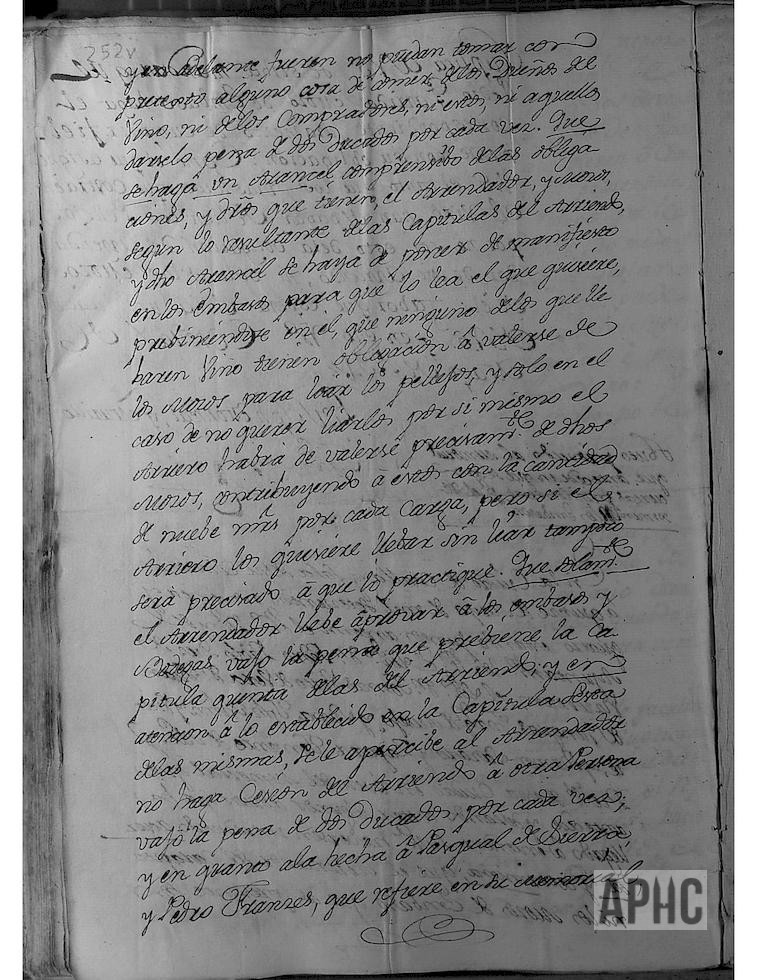 252v
y en adelante fueren no puedan tomar con
pretexto alguno cosa de comer de los Dueños del
Vino, ni de los Compradores, ni estos, ni aquellos
darselo pena de dos Ducados por cada vez. Que
se haga un Arancel comprensibo de las obliga
ciones, y dros que tienen, el Arrendador, y Mozos,
segun lo resultante de las Capitulas del Arriendo,
y dho Arancel se haya de poner de manifiesto
en los embasos para que lo lea el que quisiere,
prebiniendose en el, que ninguno de los que lle
baren Vino tienen obligacion â valerse de
los Mozos para liar los pellejos, y solo en el
caso de no querer liarlos por si mismo el
Arriero habrà de valerse precisamte de dhos
Mozos, contribuyendo à estos con la cantidad
de nuebe mrs por cada Carga, pero si el
Arriero los quisiere llebar sin liar tampoco
serà precisado â que lo practique. Que solamte
el Arrendador llebe a probar â los embasos y
Bodegas vajo la pena que prebiene la Ca
pitula quinta de las del Arriendo y en
atencion â lo establecido en la Capitula sexta
de las mismas, se le apercibe al Arrendador
no haga Cesion del Arriendo â otra Persona
vajo la pena de dos Ducados por cada vez,
y en quanto a la hecha â Pasqual de Sierra
y Pedro Franzes, que refiere en su memorial
APHC